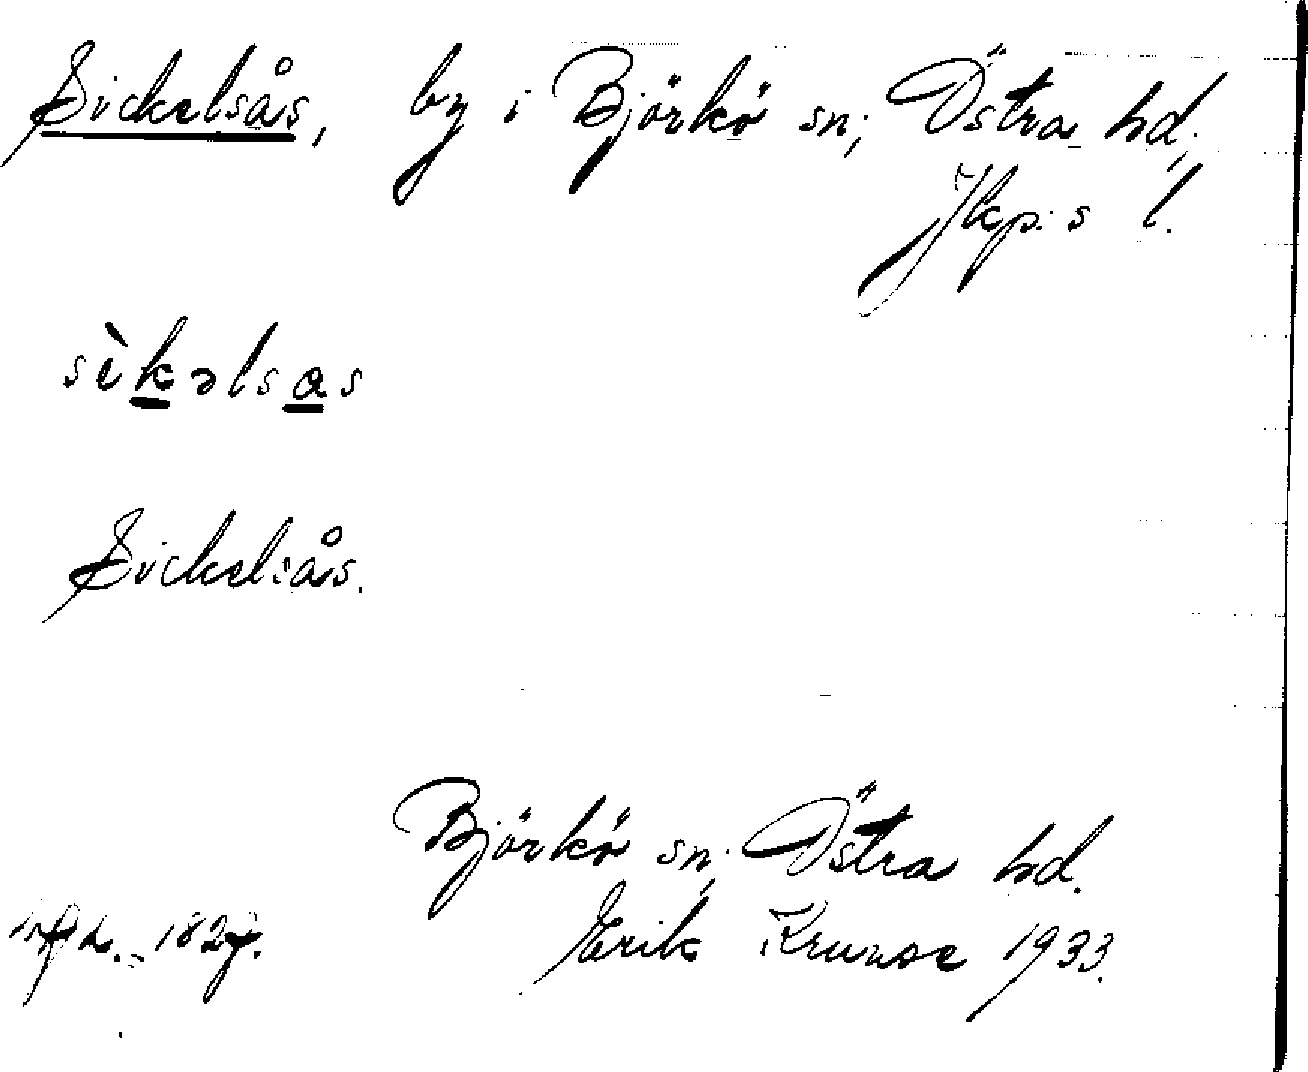 Sickelsås, by i Björkö sn, Östra hd,
Jkp:s l.
sìkəlsas
Sickelsås.
Björkö sn, Östra hd.
Erik Krunse 1933.